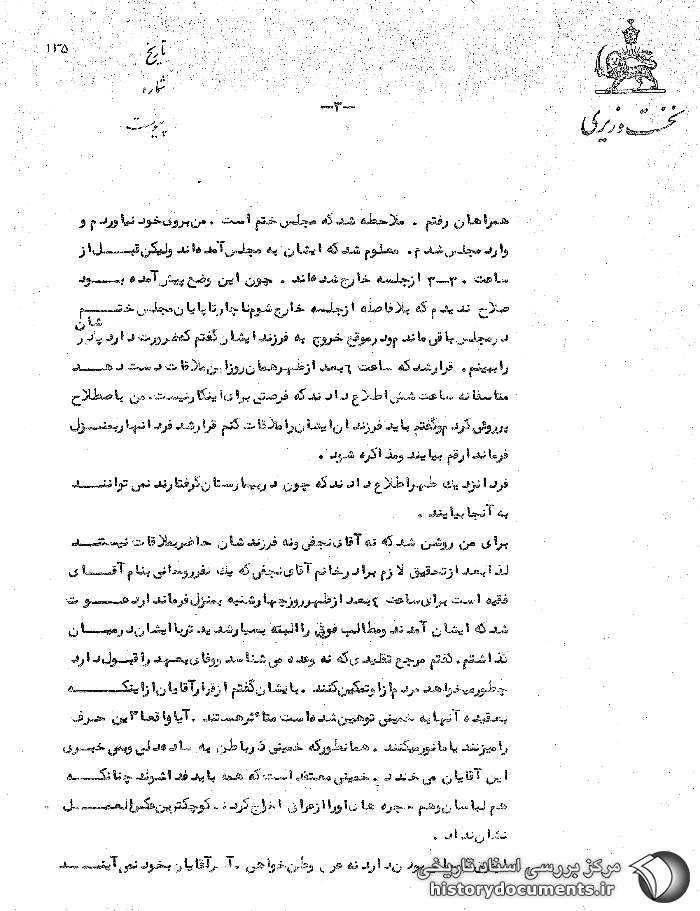 ۱۳۵
تاریخ
شماره
پیوست
نخست وزیری
—۳—
همراهان رفتم . ملاحظه شد که مجلس ختم است . من بروی خود نیاوردم و
وارد مجلس شدم . معلوم شد که ایشان به مجلس آمده اند ولیکن قبل از
ساعت ۳۰-۳ از جلسه خارج شده اند . چون این وضع پیش آمده بود
صلاح ندیدم که بلافاصله از جلسه خارج شوم ناچار تا پایان مجلس ختم
در مجلس باقی ماندم و در موقع خروج به فرزند ایشان گفتم که ضرورت دارد پدرشان
را ببینم . قرار شد که ساعت ۶ بعد از ظهر همان روز این ملاقات دست دهد
متاسفانه ساعت شش اطلاع دادند که فرصتی برای اینکار نیست . من باصطلاح
پرروئی کردم و گفتم باید فرزندان ایشان را ملاقات کنم قرار شد فردا نهار بمنزل
فرماندار قم بیایند و مذاکره شود .
فردا نزدیک ظهر اطلاع دادند که چون در بیمارستان گرفتارند نمی توانند
به آنجا بیایند .
برای من روشن شد که نه آقای نجفی و نه فرزندشان حاضر بملاقات نیستند
لذا بعد از تحقیق لازم برادر خانم آقای نجفی که یک نفر روحانی بنام آقای
فقیه است برای ساعت ۴ بعد از ظهر روز چهارشنبه بمنزل فرماندار دعوت
شد که ایشان آمدند و مطالب فوق را البته بسیار شدید تر با ایشان در میان
گذاشتم . گفتم مرجع تقلیدی که نه وعده می شناسد و وفای بعهد را قبول دارد
چطور میخواهد مردم از او تمکین کنند . بایشان گفتم از قرار آقایان از اینکه
بعقیده آنها به خمینی توهین شده است متاثر هستند . آیا واقعا این حرف
را میزنند یا مانور میکنند . همانطور که خمینی در باطن به ساده دلی و بی خبری
این آقایان می خندد . خمینی معتقد است که همه باید فدا شوند چنانکه
هم لباسان و هم حجره های او را از عراق اخراج کردند . کوچکترین عکس العمل
نشان نداد .
بودن دارد نه عرق وطن خواهی . آقایان بخود نمی آیند
مرکز بررسی اسناد تاریخی
historydocuments.ir